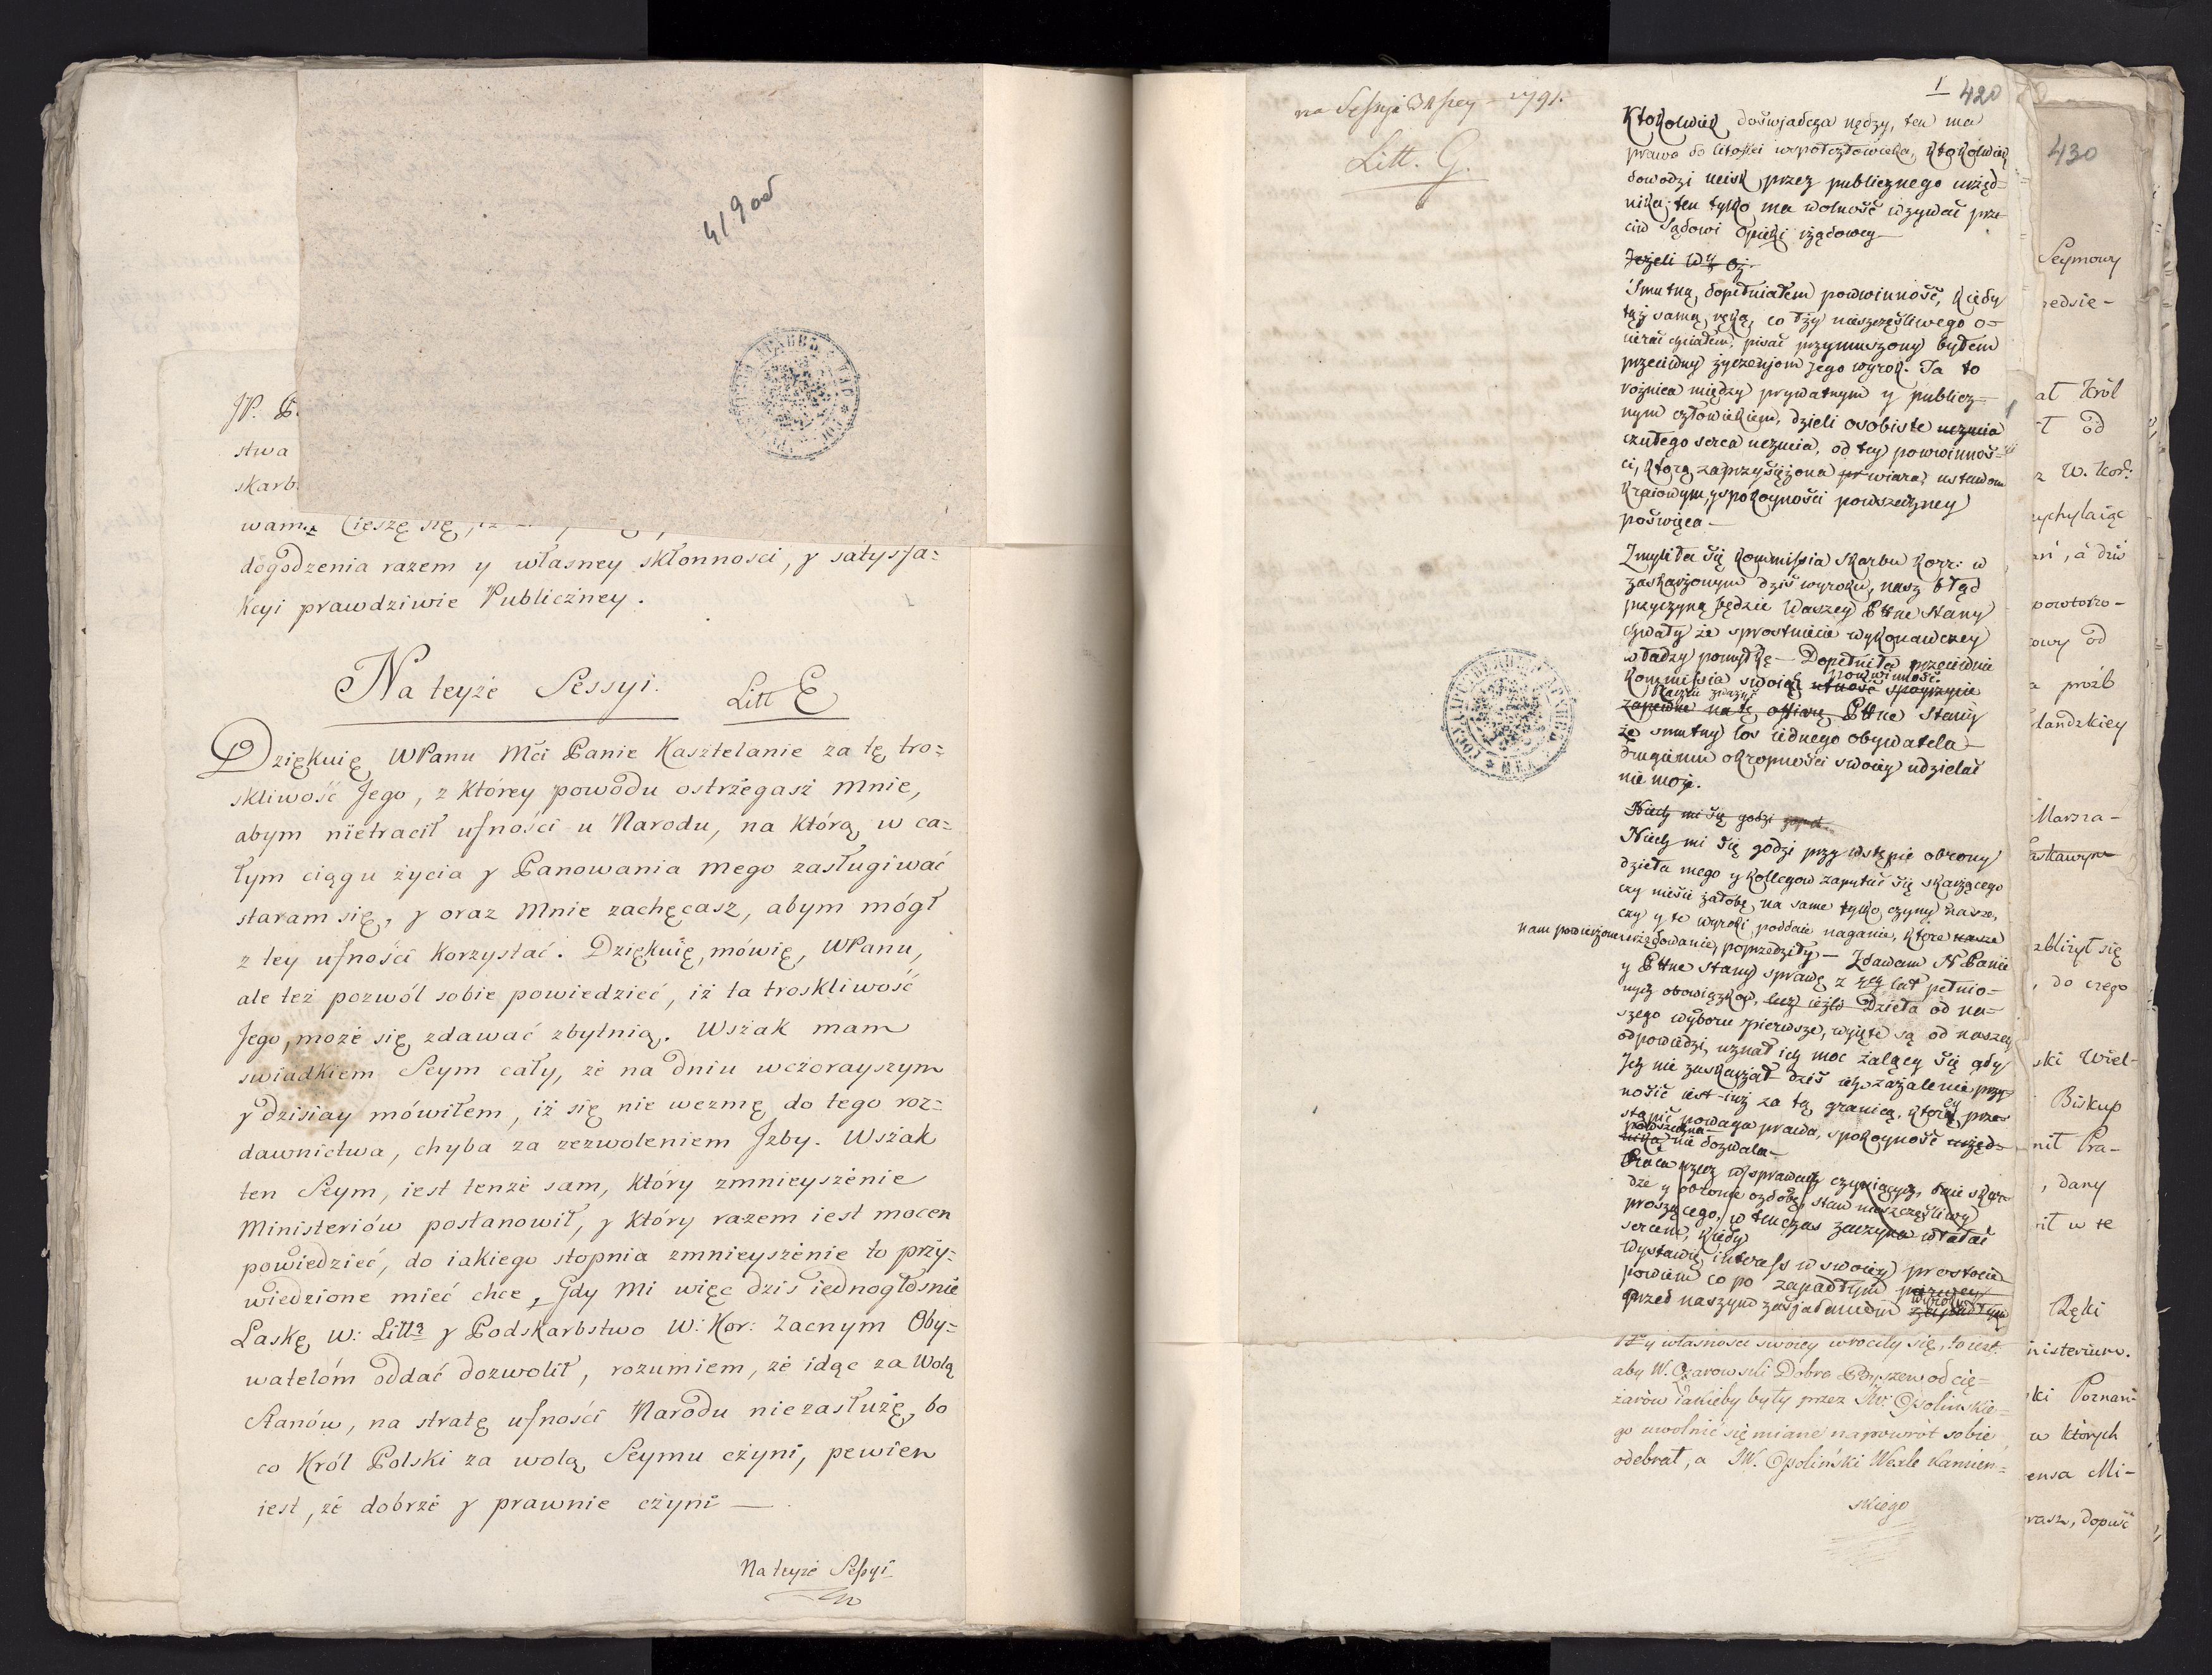 419 od
JP. P
stwa
skarb
wam. Cieszę się,
dogodzenia razem y własney skłonnosci, y satysfa=
kcyi prawdziwie Publiczney.
Na teyże Sessyi. Litt E
Dziękuię WPanu Mći Panie Kasztelanie za tę tro=
skliwość Jego, z którey powodu ostrżegasż mnie,
abym nietracił ufności u Narodu, na którą w ca=
łym ciągu życia y Panowania mego zasługiwać
staram się, y oraz mnie zachęcasz, abym mógł
z tey ufności korzystać. Dziękuię, mówię, WPanu,
ale też pozwól sobie powiedzieć, iż ta troskliwość
Jego, może się zdawać zbytnią. Wszak mam
swiadkiem Seym cały, że na dniu wczorayszym
y dzisiay mówiłem, iż się nie wezmę do tego roz=
dawnictwa, chyba za zezwoleniem Jzby. Wszak
ten Seym, iest tenże sam, który zmnieyszenie
Ministeriów postanowił, y który razem iest mocen
powiedzieć, do iakiego stopnia zmnieyszenie to przy=
wiedzione mieć chce, Gdy mi więc dziś iednogłosnie
Laskę W: Litta y Podskarbstwo W: Kor: Zacnym Oby=
watelóm oddać dozwolił, rozumiem, że idąc za Wolą
Stanów, na stratę ufności Narodu niezasłużę, bo
co Król Polski za wolą Seymu czyni, pewien
iest, że dobrże y prawnie czyni —
Na teyże Sessyi
na Sessyi 1791.
Litt. G.
1 420
Ktokolwiek doświadcza nędzy, ten ma
prawo do litości wspołczłowieka, ktokolwiek
dowodzi ucisk przez publicznego urzęd=
nika, ten tylko ma wolność wzywać prze
ciw Sądowi Opieki rządowey
Jeżeli
Smutną dopełniałem powinność, kiedy
tąż samą ręką, co łzy nieszczęśliwego o=
cierać chciałem, pisać przymuszony byłem
przeciwny życzeniom jego wyrok. Ta to
rożnica między prywatnym y publicz=
nym człowiekiem, dzieli osobiste uczucia
czułego serca uczucia, od tey powinnoś=
ci, którą zaprzysiężona wiara ustawom
kraiowym, y spokoyności powszechney
poświęca —
Zmyliła się Kommissia Skarbu Korr: w
zaskarżonym dziś wyroku, nasz błąd
przyczyną będzie Waszey Pttne Stany
chwały że sprostuiecie wykonawczey
władzy pomyłkę — Dopełniła przeciwnie
powinność
Kommissia swoią ufność spoyrzycie
Raczcie zważyć
zapewne na tę offiarę Pttne Stany
że smutny los iednego obywatela
drugiemu okropności swoiey udzielać
nie może.
Niech mi się godzi
Niech mi się godzi przy wstępie obrony
dzieła mego y kollegow zapytać się skarżącego
czy niesie żałobę na same tylko czyny nasze,
czy y te wyroki poddaie naganie, które nasze
nam powierzone urzędowanie, poprzedziły — Zdawam N Panie
y Pttne Stany sprawę z lat pełnio=
nych obowiązkow, Dzieła od na=
szego wyboru pierwsze, wyięte są od naszey
odpowiedzi, uznał ich moc żalący się gdy
Ich nie zaskarżał dziś zażalenie przy
nosić iest iuż za tą granicą, ktorey prze=
stąpić powaga prawa, spokoyność urzęd=
powszechna
nika nie dozwala —
Praca
dze y obronie ozdobę, staw nieszczęśliwy
proszącego, w tenczas zaczyna władać
sercem, kiedy
Wystawię interess w swoiey prostocie
powiem co po zapadłym
wyroku
przed naszym zasiadaniem zapadłym
y własnosci swoiey wrociły się, to iest.
aby W. Ożarowski Dobra od cię=
żarów iakieby były przez JW. Opolińskie=
go uwolnić się miane napowrót sobie
odebrał, a JW. Opoliński Wexle Kamień=
skiego
430
Seymowy
zedsie-
at Król
ł od
W. Kor:
uchylaiąc
powtóro-
owy od
a proźb
landzkiey
Marsza-
askawym
zbliżył się
, do czego
ski Wiel-
Biskup
nił Pra-
, dany
ił w te
Ręki
inisterium.
ki Poznań
w których
ensa Mi-
rasz, dopuść